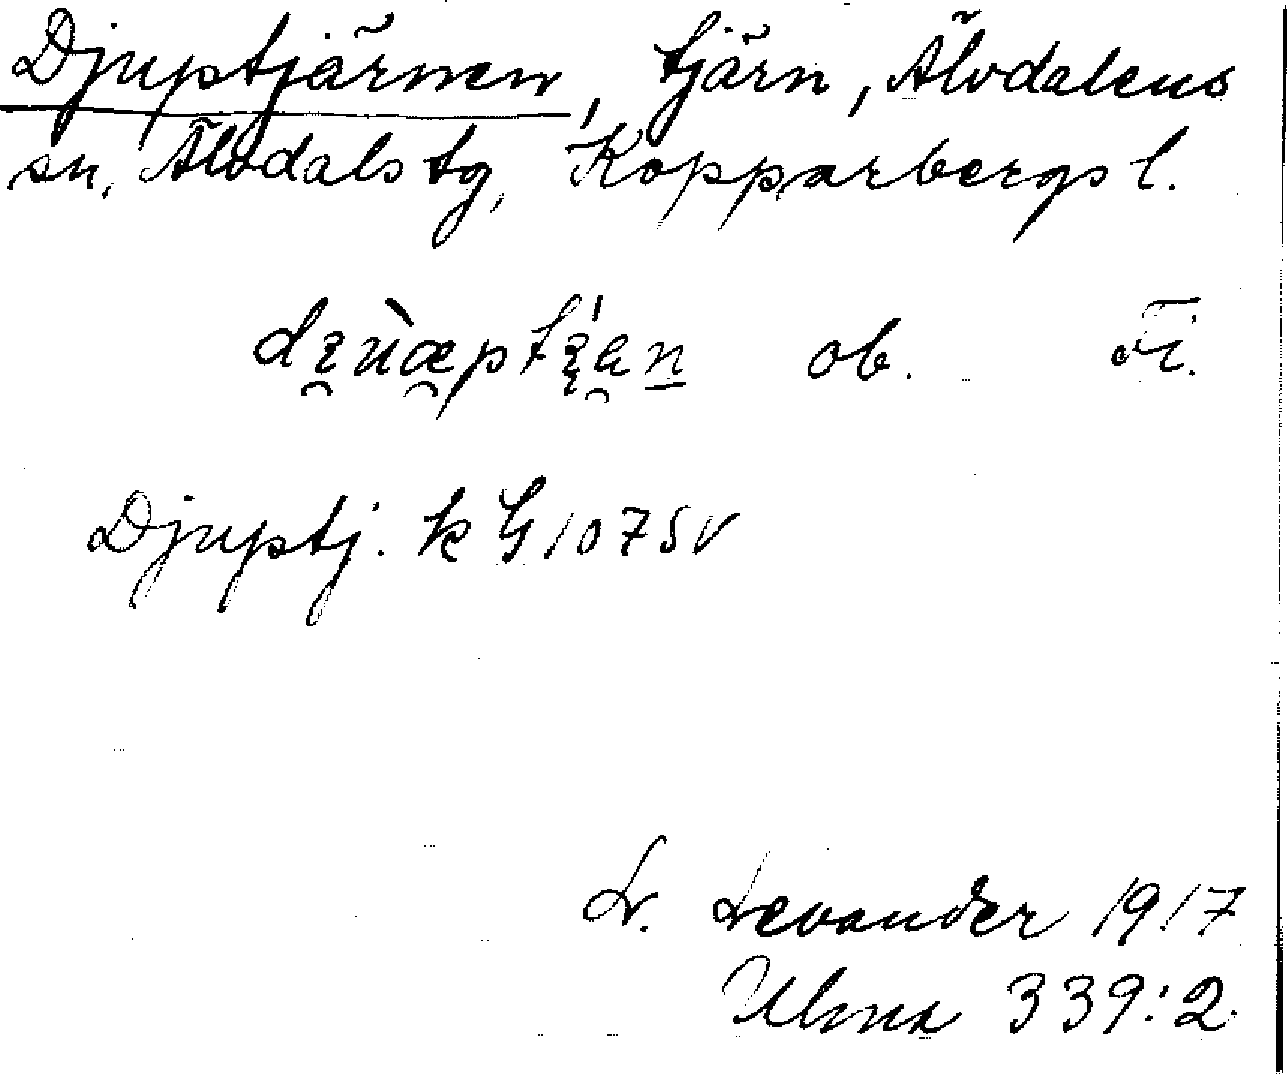 Djuptjärnen, tjärn, Älvdalens
sn, Älvdals tg, Kopparbergs l.
ob.
Djuptj. k G 107 SV
L. Levander 1917
Ulma 339:2.